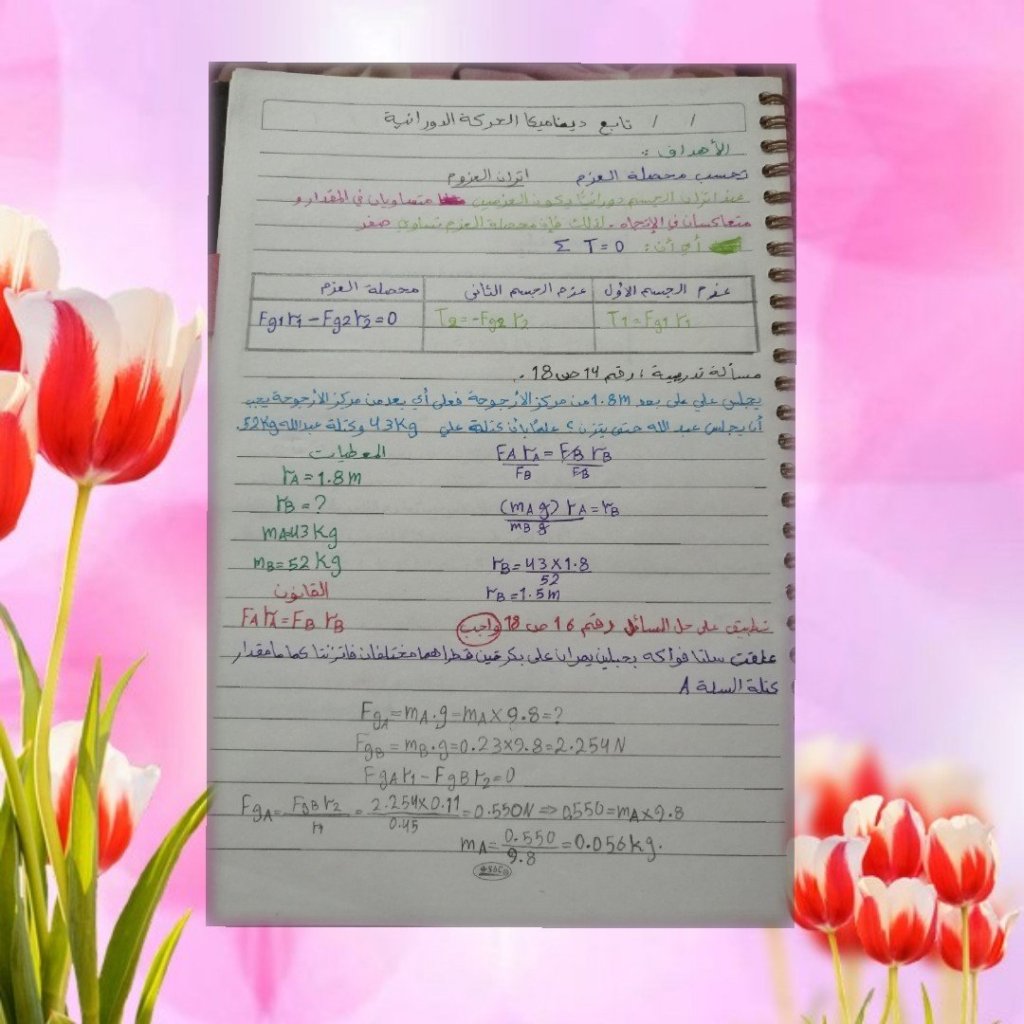 / / تابع ديناميكا الحركة الدورانية
الأهداف :
نحسب محصلة العزم اتزان العزوم
عند اتزان الجسم دورانيًا يكون العزمين متساويان في المقدار و
متعاكسان في الإتجاه . لذلك فإن محصلة العزم تساوي صفر
أي أن : Σ T = 0
عزم الجسم الأول عزم الجسم الثاني محصلة العزم
T1 = Fg1 r1 T2 = -Fg2 r2 Fg1 r1 - Fg2 r2 = 0
مسألة تدريبية ، رقم 14 ص 18 .
يجلس علي على بعد 1.8m من مركز الأرجوحة فعلى أي بعد من مركز الأرجوحة يجب
أن يجلس عبد الله حتى يتزن ؟ علمًا بأن كتلة علي 43Kg وكتلة عبدالله 52Kg.
المعطيات
rA = 1.8 m
rB = ?
mA = 43 Kg
mB = 52 Kg
القانون
FA rA = FB rB
FA rA = FB rB
FB FB
(mA g) rA = rB
mB g
rB = 43 × 1.8
52
rB = 1.5 m
تطبيق على حل المسائل رقم 16 ص 18 واجب
علقت سلتا فواكه بحبلين يمران على بكرتين قطراهما مختلفان فاتزنتا كما ما مقدار
كتلة السلة A
FgA = mA . g = mA × 9.8 = ?
FgB = mB . g = 0.23 × 9.8 = 2.254 N
FgA r1 - FgB r2 = 0
FgA = FgB r2 / r1 = 2.254 × 0.11 / 0.45 = 0.550 N ⇒ 0.550 = mA × 9.8
mA = 0.550 / 9.8 = 0.056 kg.